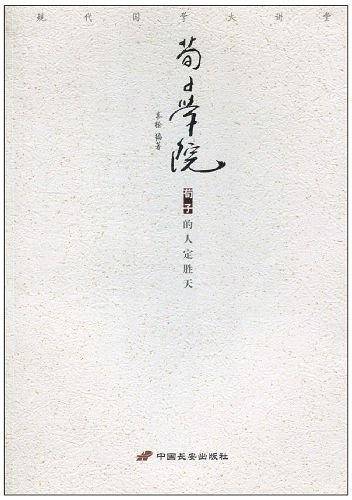 现代国学大讲堂
荀子學院
编著
荀子的人定胜天
中國長安出版社